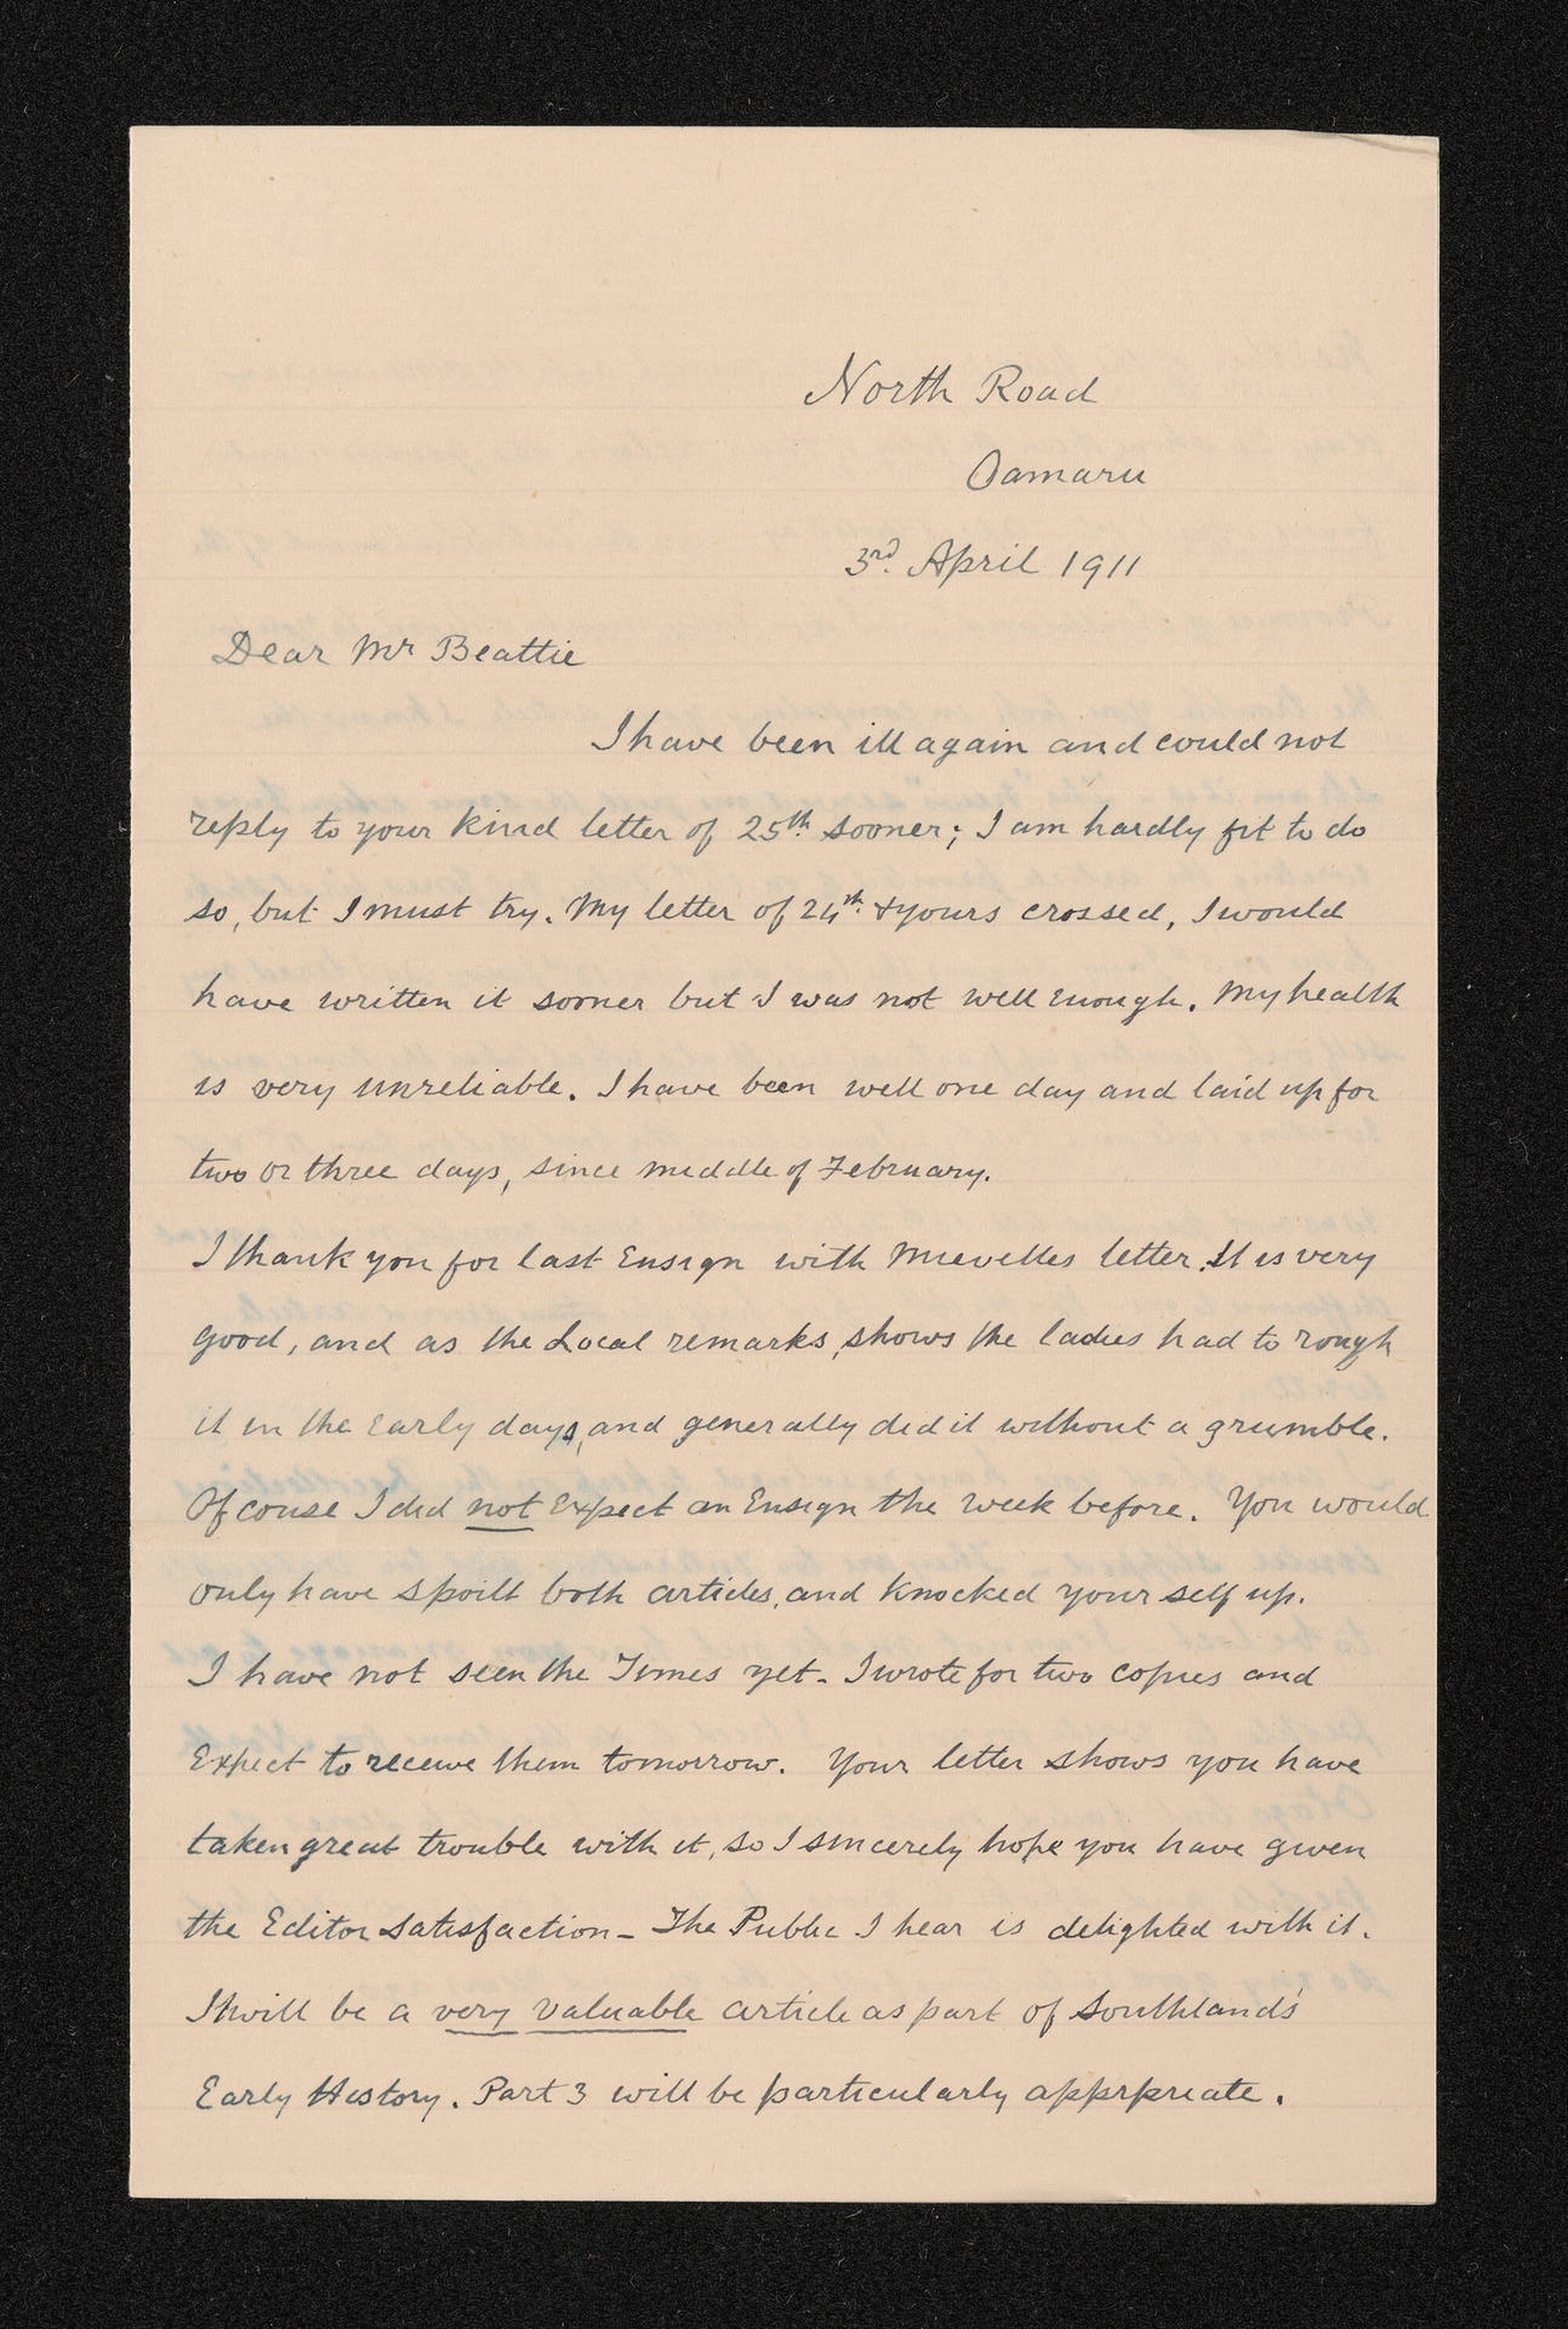 North Road
Oamaru
3rd. April 1911
Dear Mr Beattie
I have been ill again and could not
reply to your kind letter of 25th. sooner; I am hardly fit to do
so, but I must try. My letter of 24th. & yours crossed, I would
have written it sooner but I was not well enough. My health
is very unreliable. I have been well one day and laid up for
two or three days, since middle of February.
I thank you for last Ensign with Mievilles letter. It is very
good, and as the Local remarks, shows the ladies had to rough
it in the Early days, and generally did it without a grumble.
Of couse I did not Expect an Ensign the week before. You would
only have spoilt both articles, and knocked your self up.
I have not seen the Times yet - I wrote for two copies and
Expect to receive them tomorrow. Your letter shows you have
taken great trouble with it, so I sincerely hope you have given
the Editor satisfaction - The Public I hear is delighted with it.
It will be a very valuable article as part of Southland's
Early History. Part 3 will be particularly apprpriate.